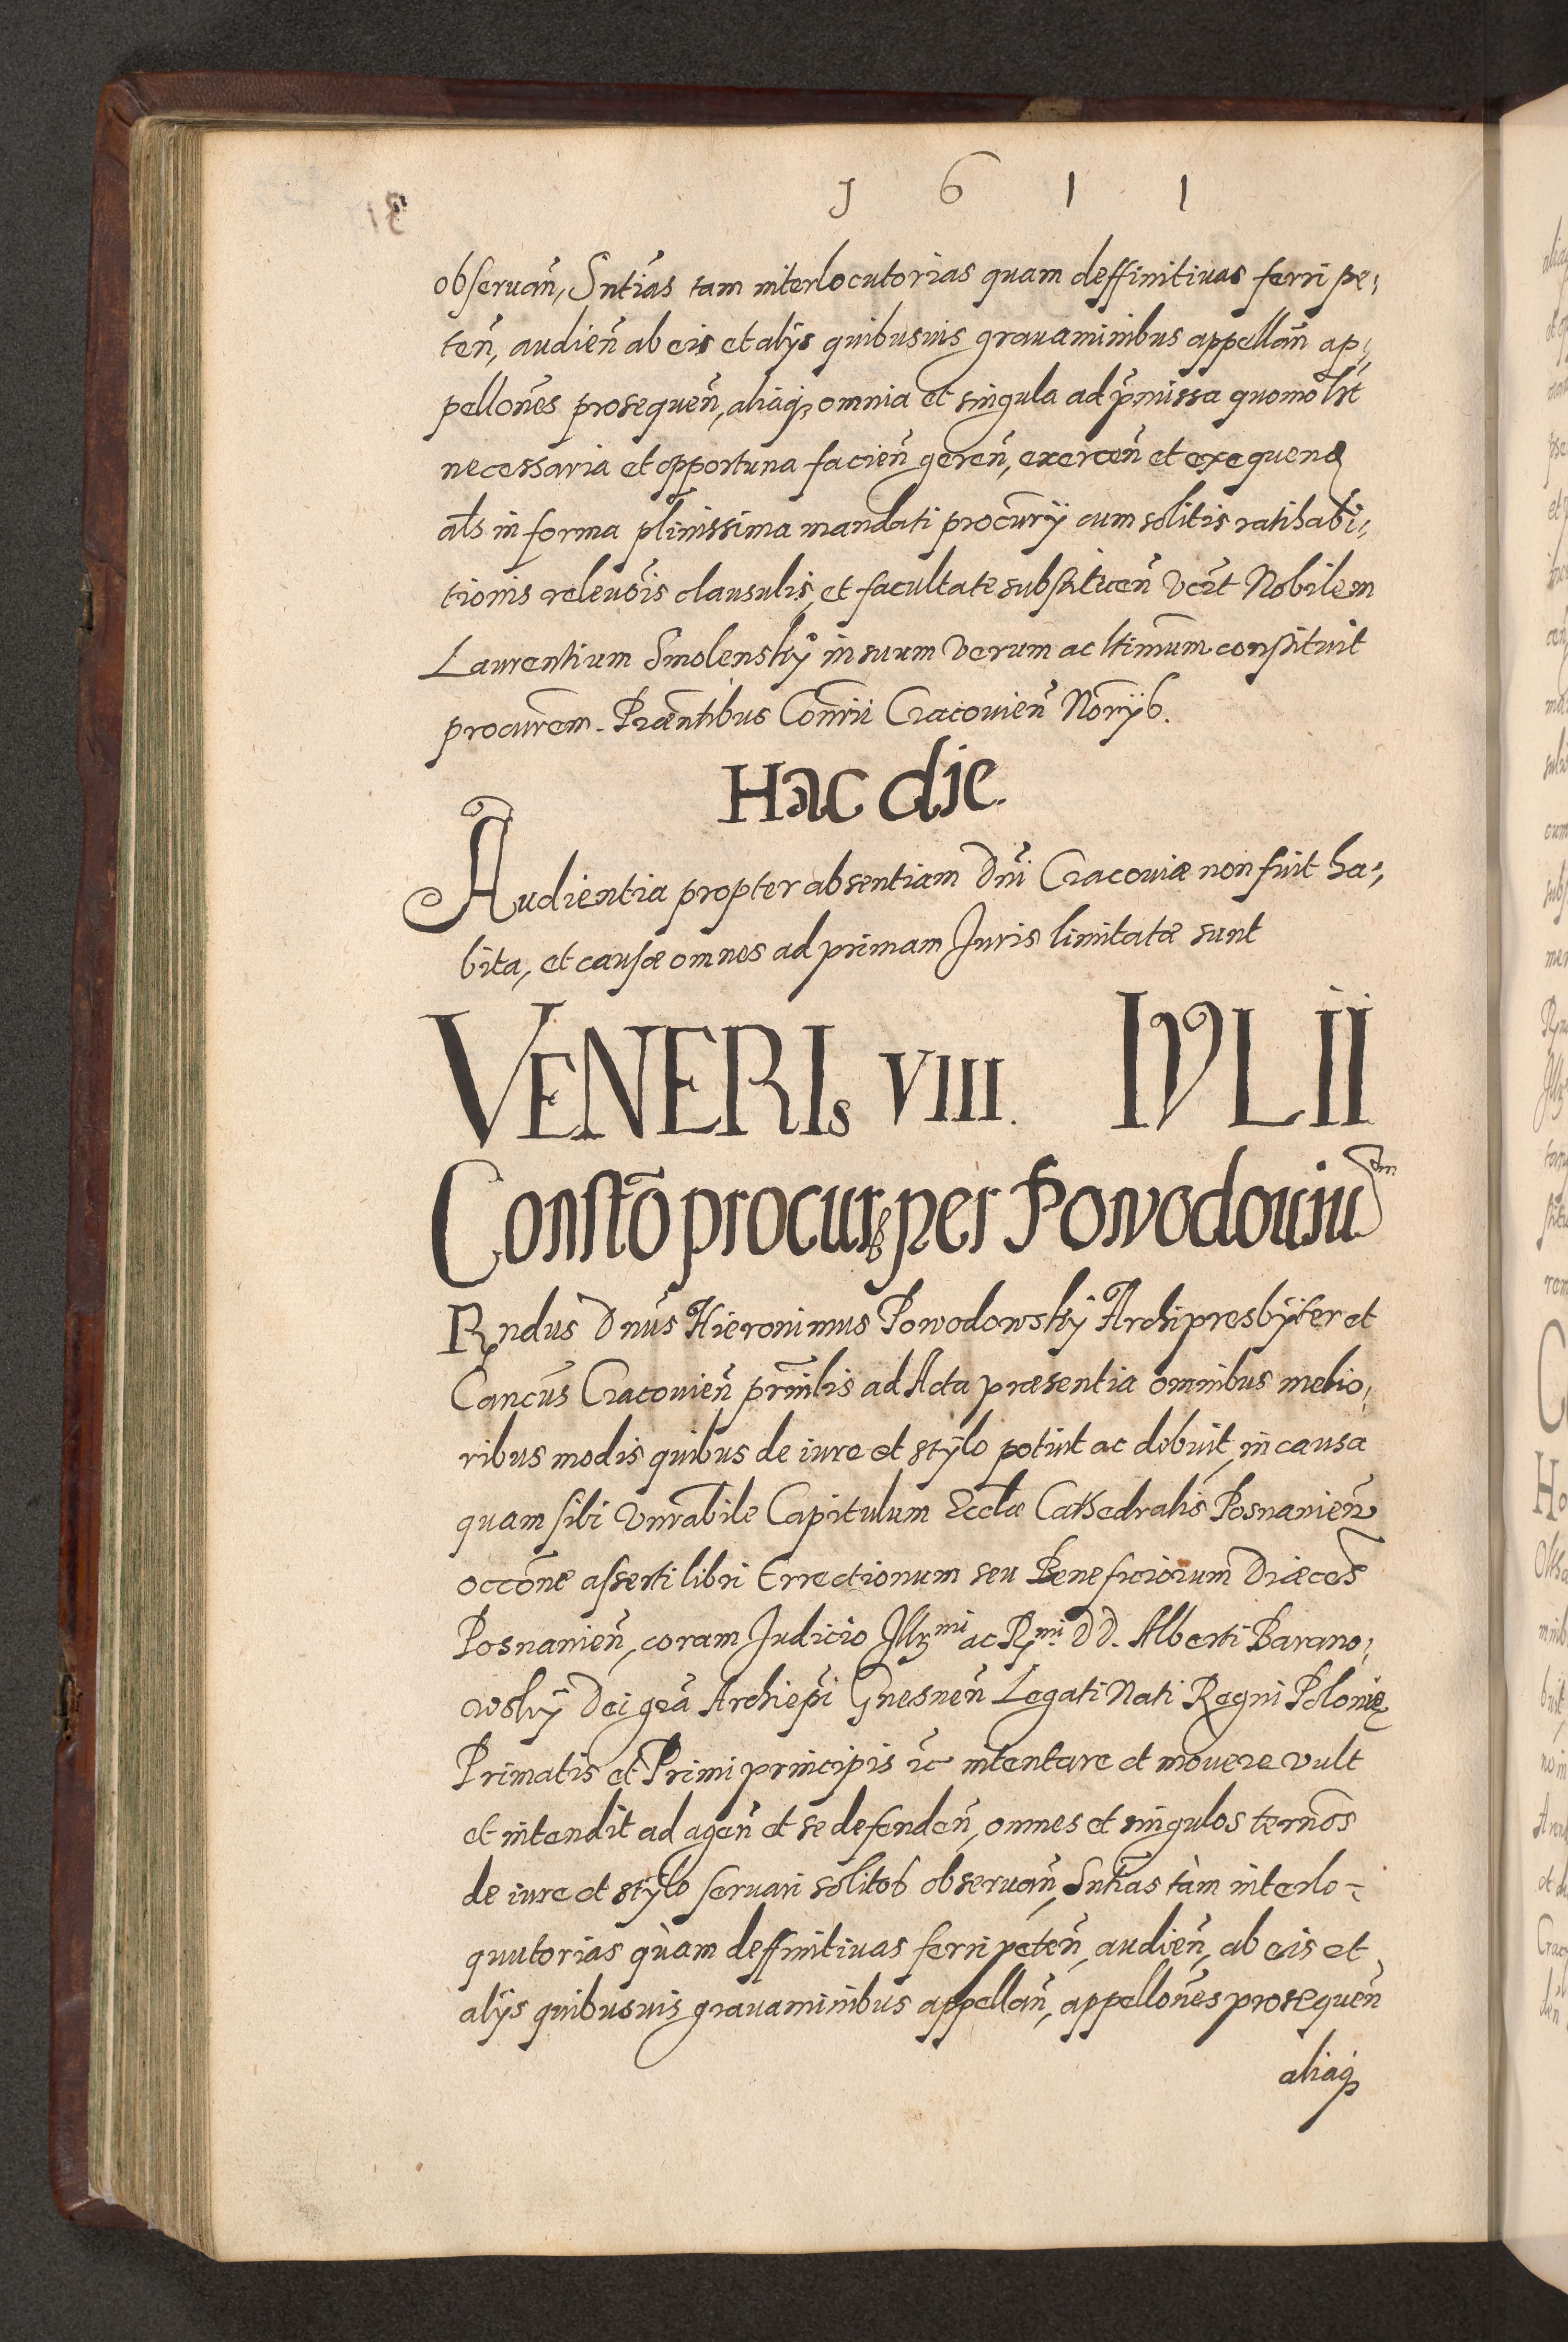 1 6 1 1
obseruan̄, Sntias tam interlocutorias quam deffinitiuas ferri pe,
ten̄, audien̄ ab eis et alÿs quibusuis grauaminibus appellan̄ ap,
pellones prosequen̄, aliaq, omnia et singula ad p̄missa quomolt
necessaria et opportuna facien̄ geren̄, exercen̄ et exequend
als in forma plinissima mandati procurÿ cum solitis ratihabi,
tionis releuois clausulis, et facultate substituen̄ vczt Nobilem
Laurentium Smolensky in suum verum ac ltimum constituit
procurem. Praentibus Conrii Cracouien̄ Norÿb.
Hac die.
Audientia propter absentiam Dni Cracouiæ non fuit ha,
bita, et causæ omnes ad primam Juris limitatæ sunt
VENERIs VIII. IVLII
Constō procur per Powodouiu em
Rndus Dnus Hieronimus Powodowskÿ Archipresbÿter et
Cancus Cracouien̄ prmlis ad Acta præsentia omnibus melio,
ribus modis quibus de iure et stÿlo potuit ac debuit, in causa
quam sibi Vnrabile Capitulum Eccllæ Cathedralis Posnanien̄
occone asserti libri Errectionum seu Beneficiorum Diæces
Posnanien̄, coram Judicio Illz mi ac R mi DD. Alberti Barano,
owskÿ Dei gra Archiepi Gnesnen̄ Legati Nati Regni Polonię
Primatis et Primi principis zc intentare et mouere vult
et intendit ad agen̄ et se defenden̄, omnes et singulos ternos
de iure et stÿlo seruari solitos obseruan̄, Sntias tàm interlo-
quutorias quàm deffinitiuas ferri peten̄, audien̄, ab eis et
alÿs quibusuis grauaminibus appellan̄, appellones prosequen̄
aliaq,